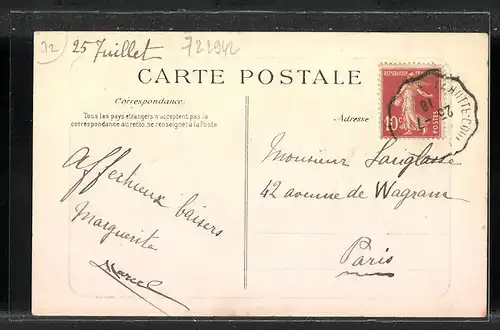 72
25 Juillet
722942
CARTE POSTALE
Correspondance
Tous les pays étrangers n'acceptent pas la
correspondance au recto, se renseigner à la Poste
Affectueux baisers
Marguerite
Marcel
Adresse
REPUBLIQUE FRANÇAISE
10c
POSTES
HUTTE-COU
25-7
Monsieur Langlasse
42 avenue de Wagram
Paris